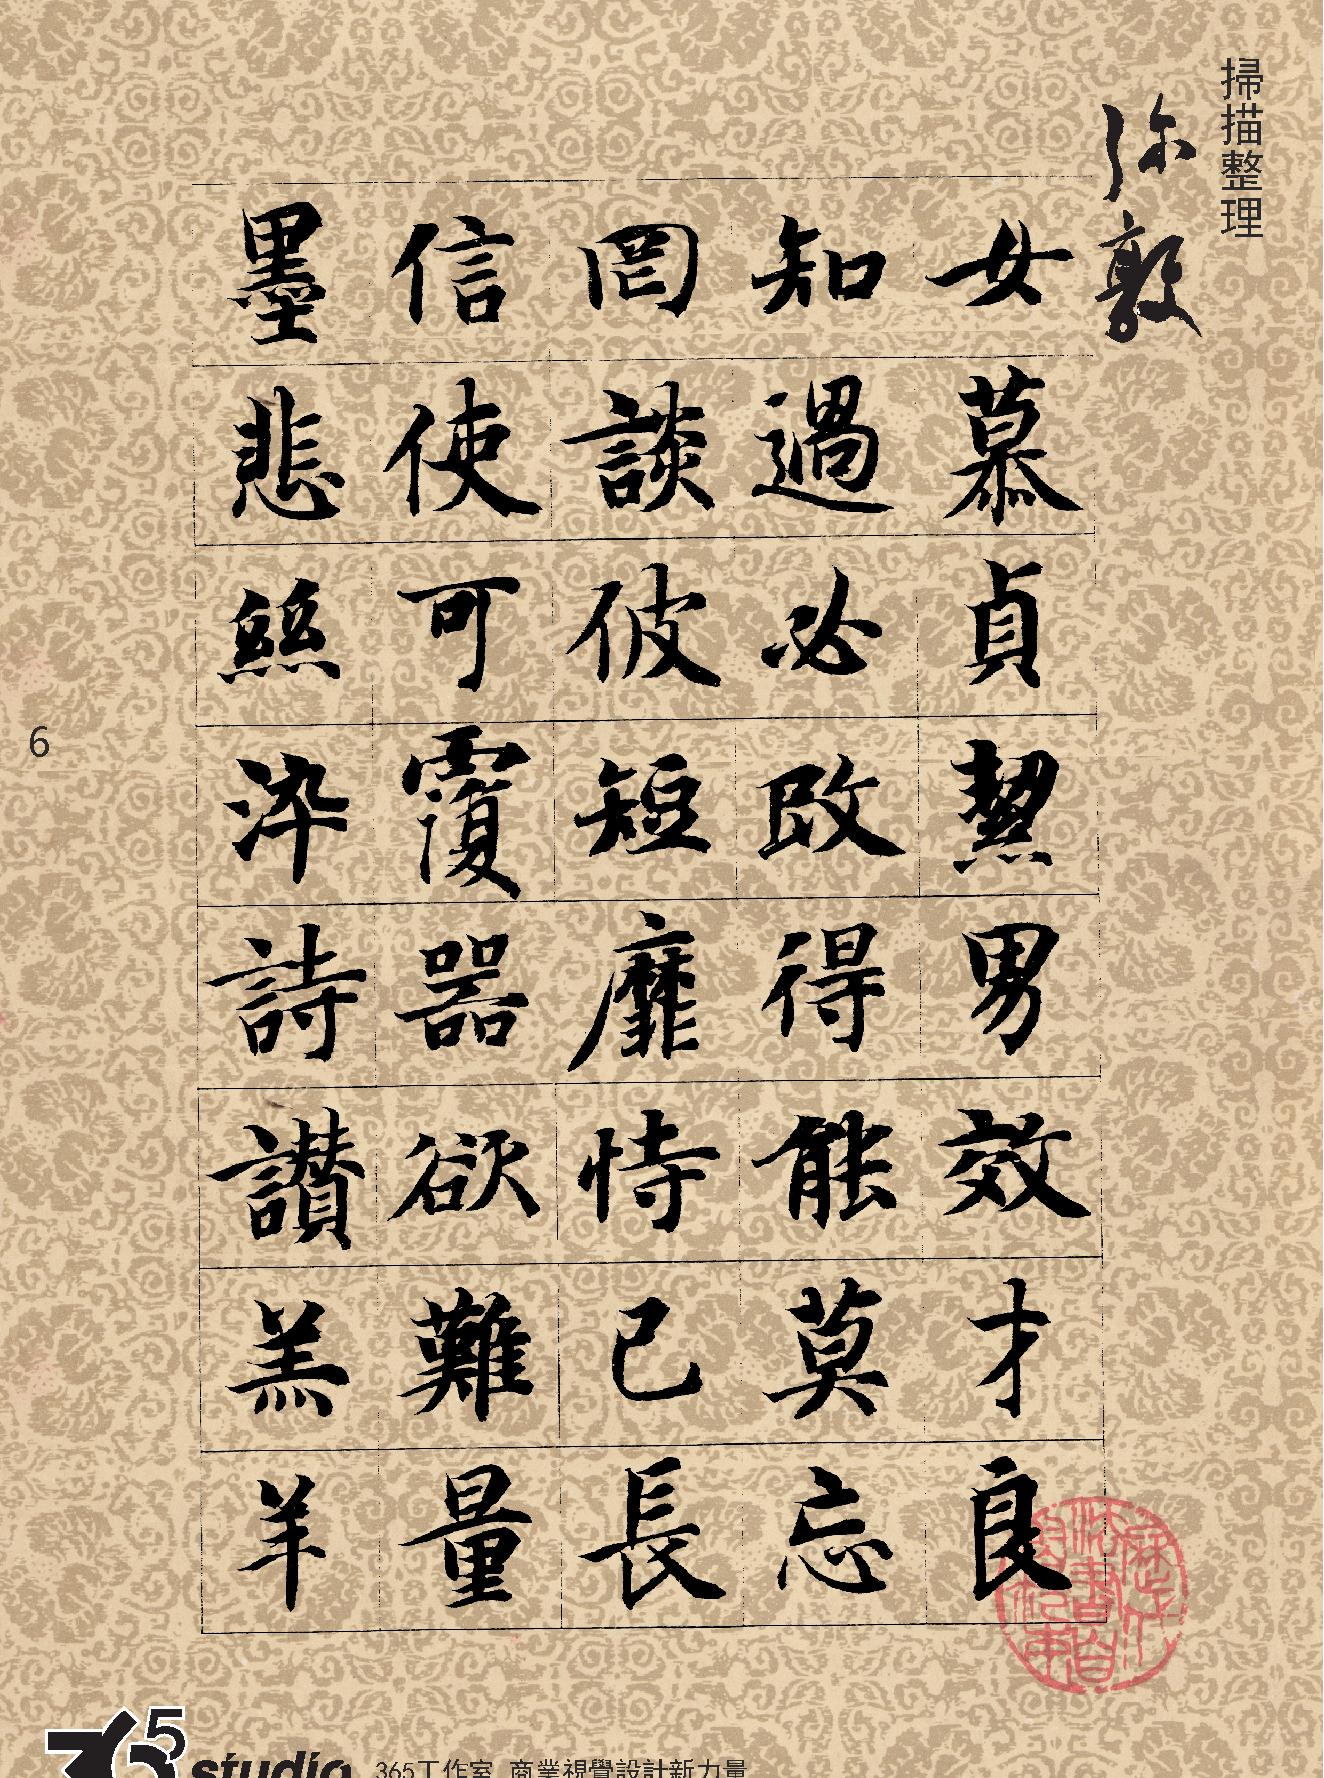 掃描整理
弥敦
女慕貞絜男效才良
知過必改得能莫忘
罔談彼短靡恃己長
信使可覆器欲難量
墨悲絲染詩讚羔羊
6
365 studio
365工作室 商業視覺設計新力量